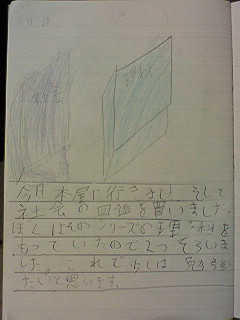 理科
今日本屋に行きました。そして
社会の図鑑を買いました。
ぼくはそのシリーズの理科を
もっていたので2つそろいま
した。これで少しは
たいと思います。